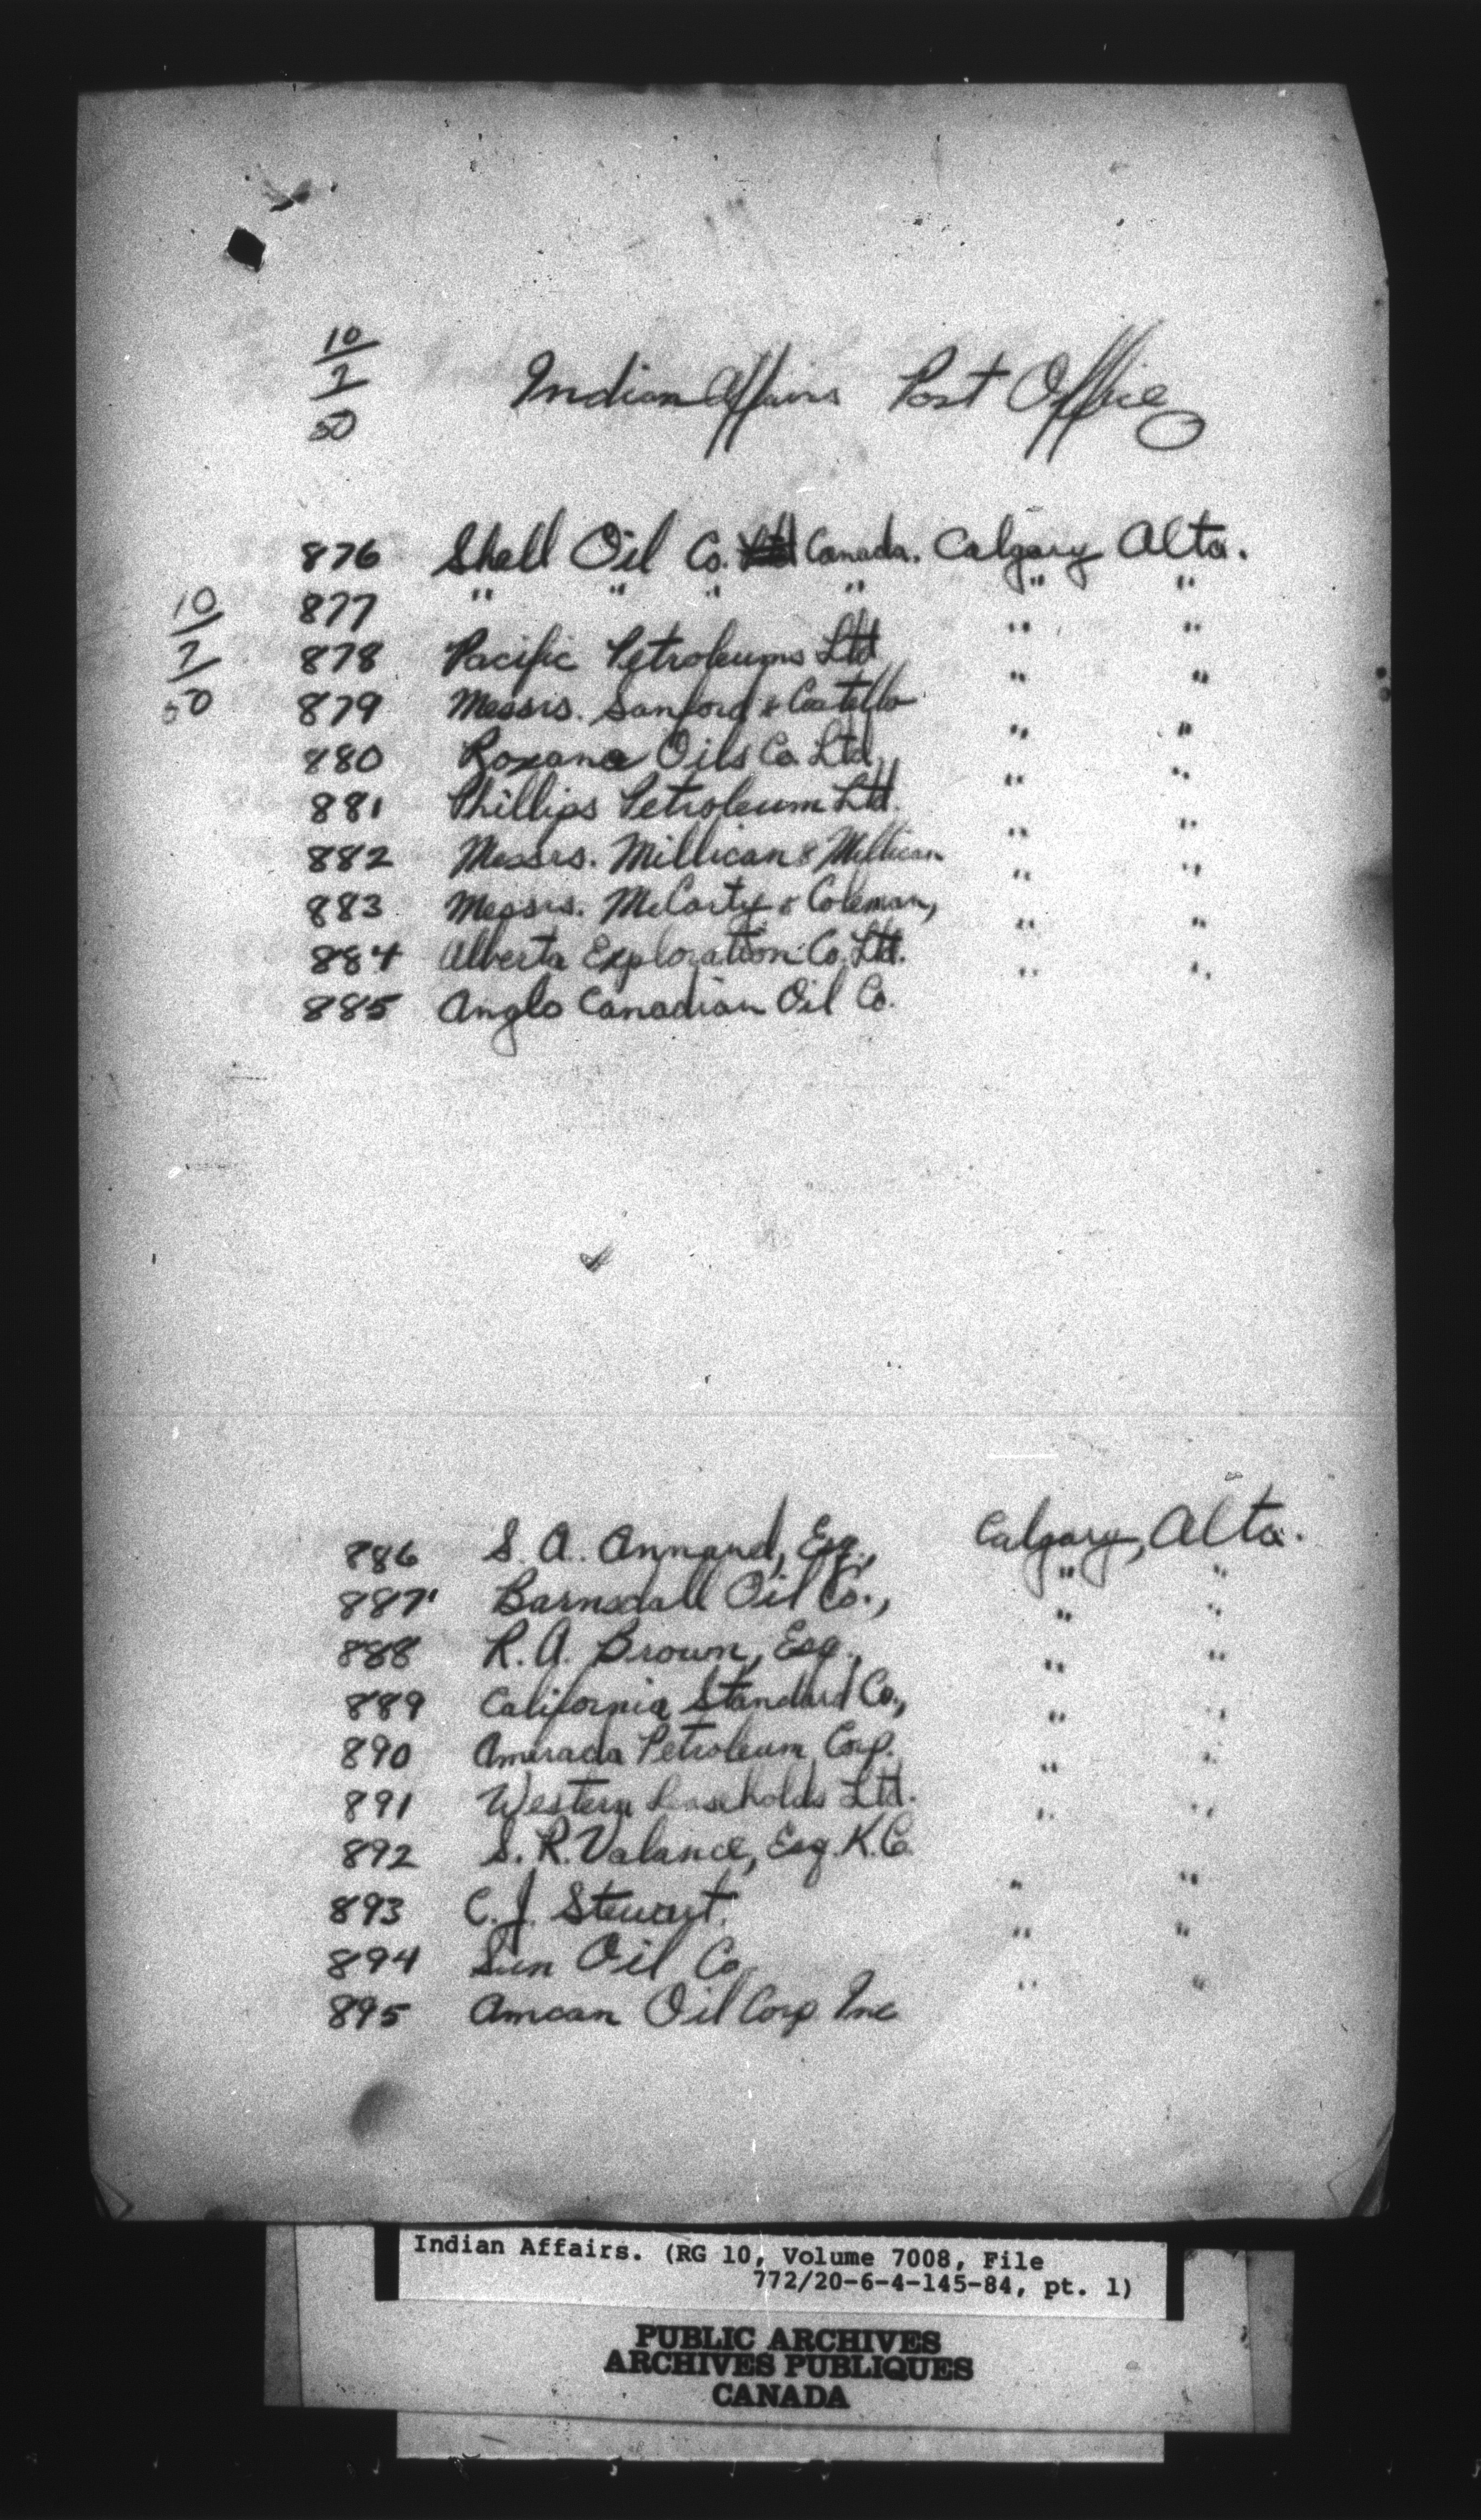 10
2
50
Indian Affairs Post Office
876 Shell Oil Co. Ltd Canada. Calgary Alta.
877 " " " " " "
10
2
50
878 Pacific Petroleums Ltd " "
879 Messrs. Sanford & Costello " "
880 Roxana Oils Co Ltd. " "
881 Phillips Petroleum Ltd. " "
882 Messrs. Millican & Millican " "
883 Messrs. McCarty & Coleman, " "
884 Alberta Exploration Co. Ltd. " "
885 Anglo Canadian Oil Co. " "
886 S. A. Annand, Esq., Calgary, Alta.
887 Barnsdall Oil Co., " "
888 R. A. Brown, Esq., " "
889 California Standard Co., " "
890 Amerada Petroleum Corp. " "
891 Western Leaseholds Ltd. " "
892 S. R. Valance, Esq. K.C. " "
893 C. J. Stewart. " "
894 Sun Oil Co. " "
895 Amcan Oil Corp Inc " "
Indian Affairs. (RG 10, Volume 7008, File
772/20-6-4-145-84, pt. 1)
PUBLIC ARCHIVES
ARCHIVES PUBLIQUES
CANADA